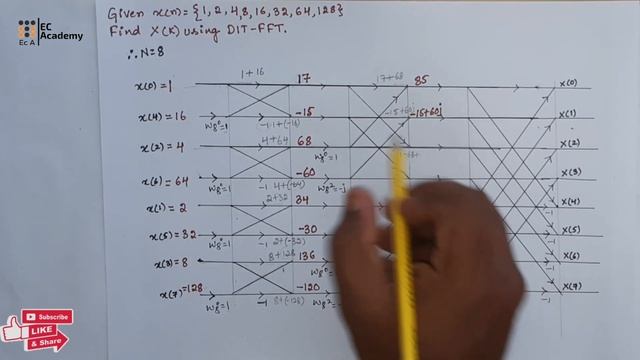 EC
Academy
Ec A
Given x(n) = {1, 2, 4, 8, 16, 32, 64, 128}
Find X(K) using DIT-FFT.
∴ N=8
x(0)=1 1+16 17 17+68 85 X(0)
x(4)=16 W₈⁰=1 -1 1+(-16) -15 -15+60j -15+60j X(1)
x(2)=4 4+64 68 W₈⁰=1 X(2)
x(6)=64 W₈⁰=1 -1 4+(-64) -60 W₈²=-j X(3)
x(1)=2 2+32 34 -1 X(4)
x(5)=32 W₈⁰=1 -1 2+(-32) -30 -1 X(5)
x(3)=8 8+128 136 W₈⁰= -1 X(6)
x(7)=128 W₈⁰=1 -1 8+(-128) -120 W₈²= -1 X(7)
Subscribe
LIKE
& Share